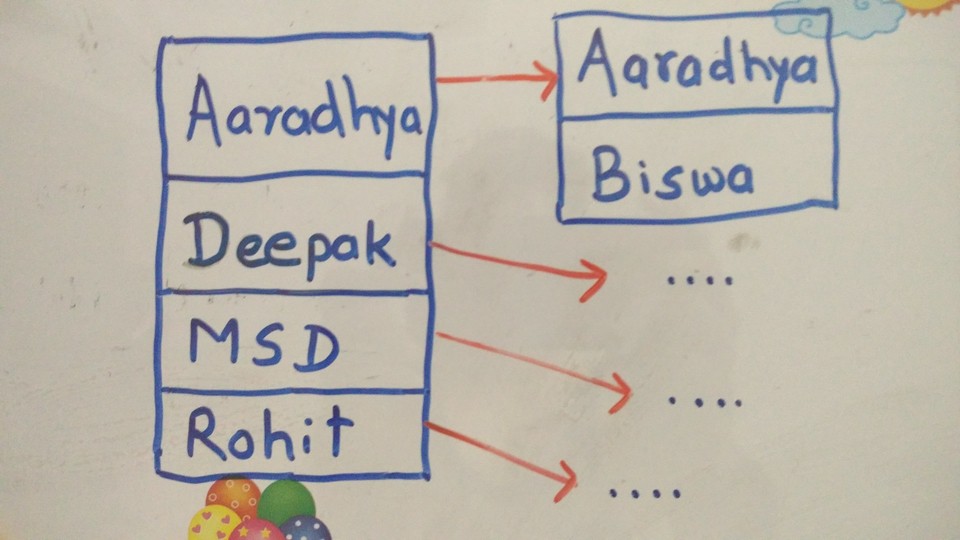 Aaradhya
Deepak
MSD
Rohit
Aaradhya
Biswa
....
....
....